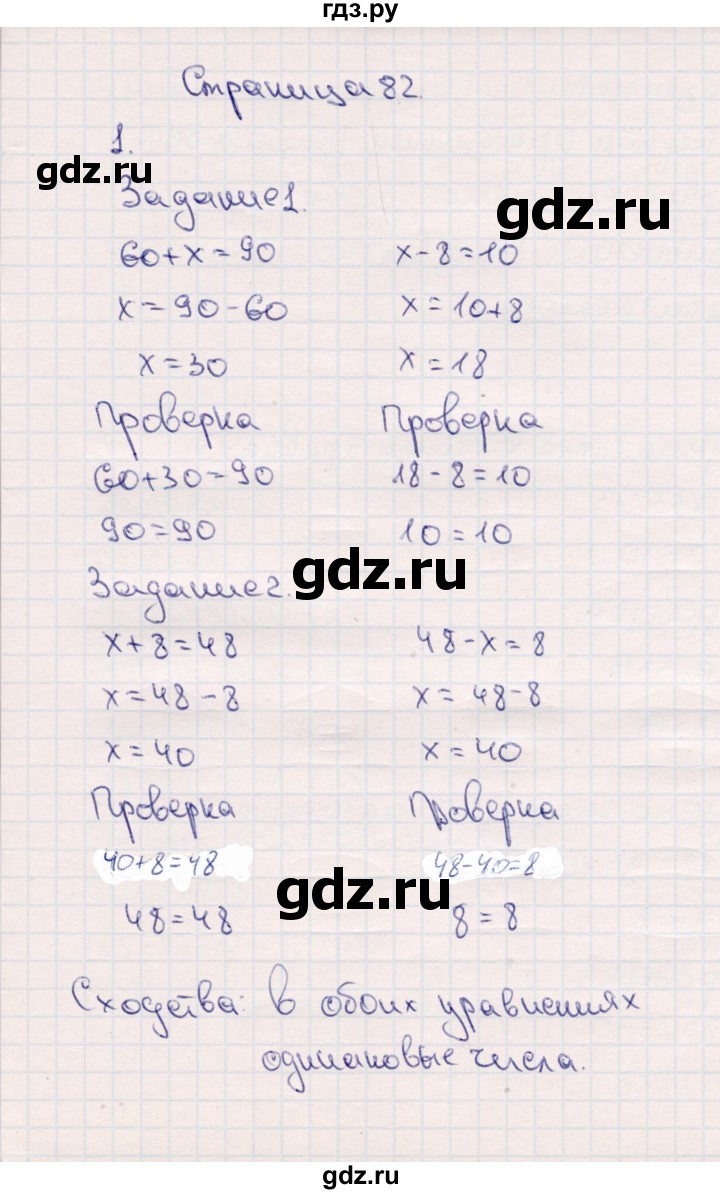 гдз.ру
Страница 82.
1.
gdz.ru
Задание 1.
gdz.ru
60+x=90 x-8=10
x=90-60 x=10+8
x=30 x=18
Проверка Проверка
60+30=90 18-8=10
90=90 10=10
gdz.ru
Задание 2.
x+8=48 48-x=8
x=48-8 x=48-8
x=40 x=40
Проверка Проверка
40+8=48 48-40=8
gdz.ru
48=48 8=8
Сходства: в обоих уравнениях
одинаковые числа.
gdz.ru